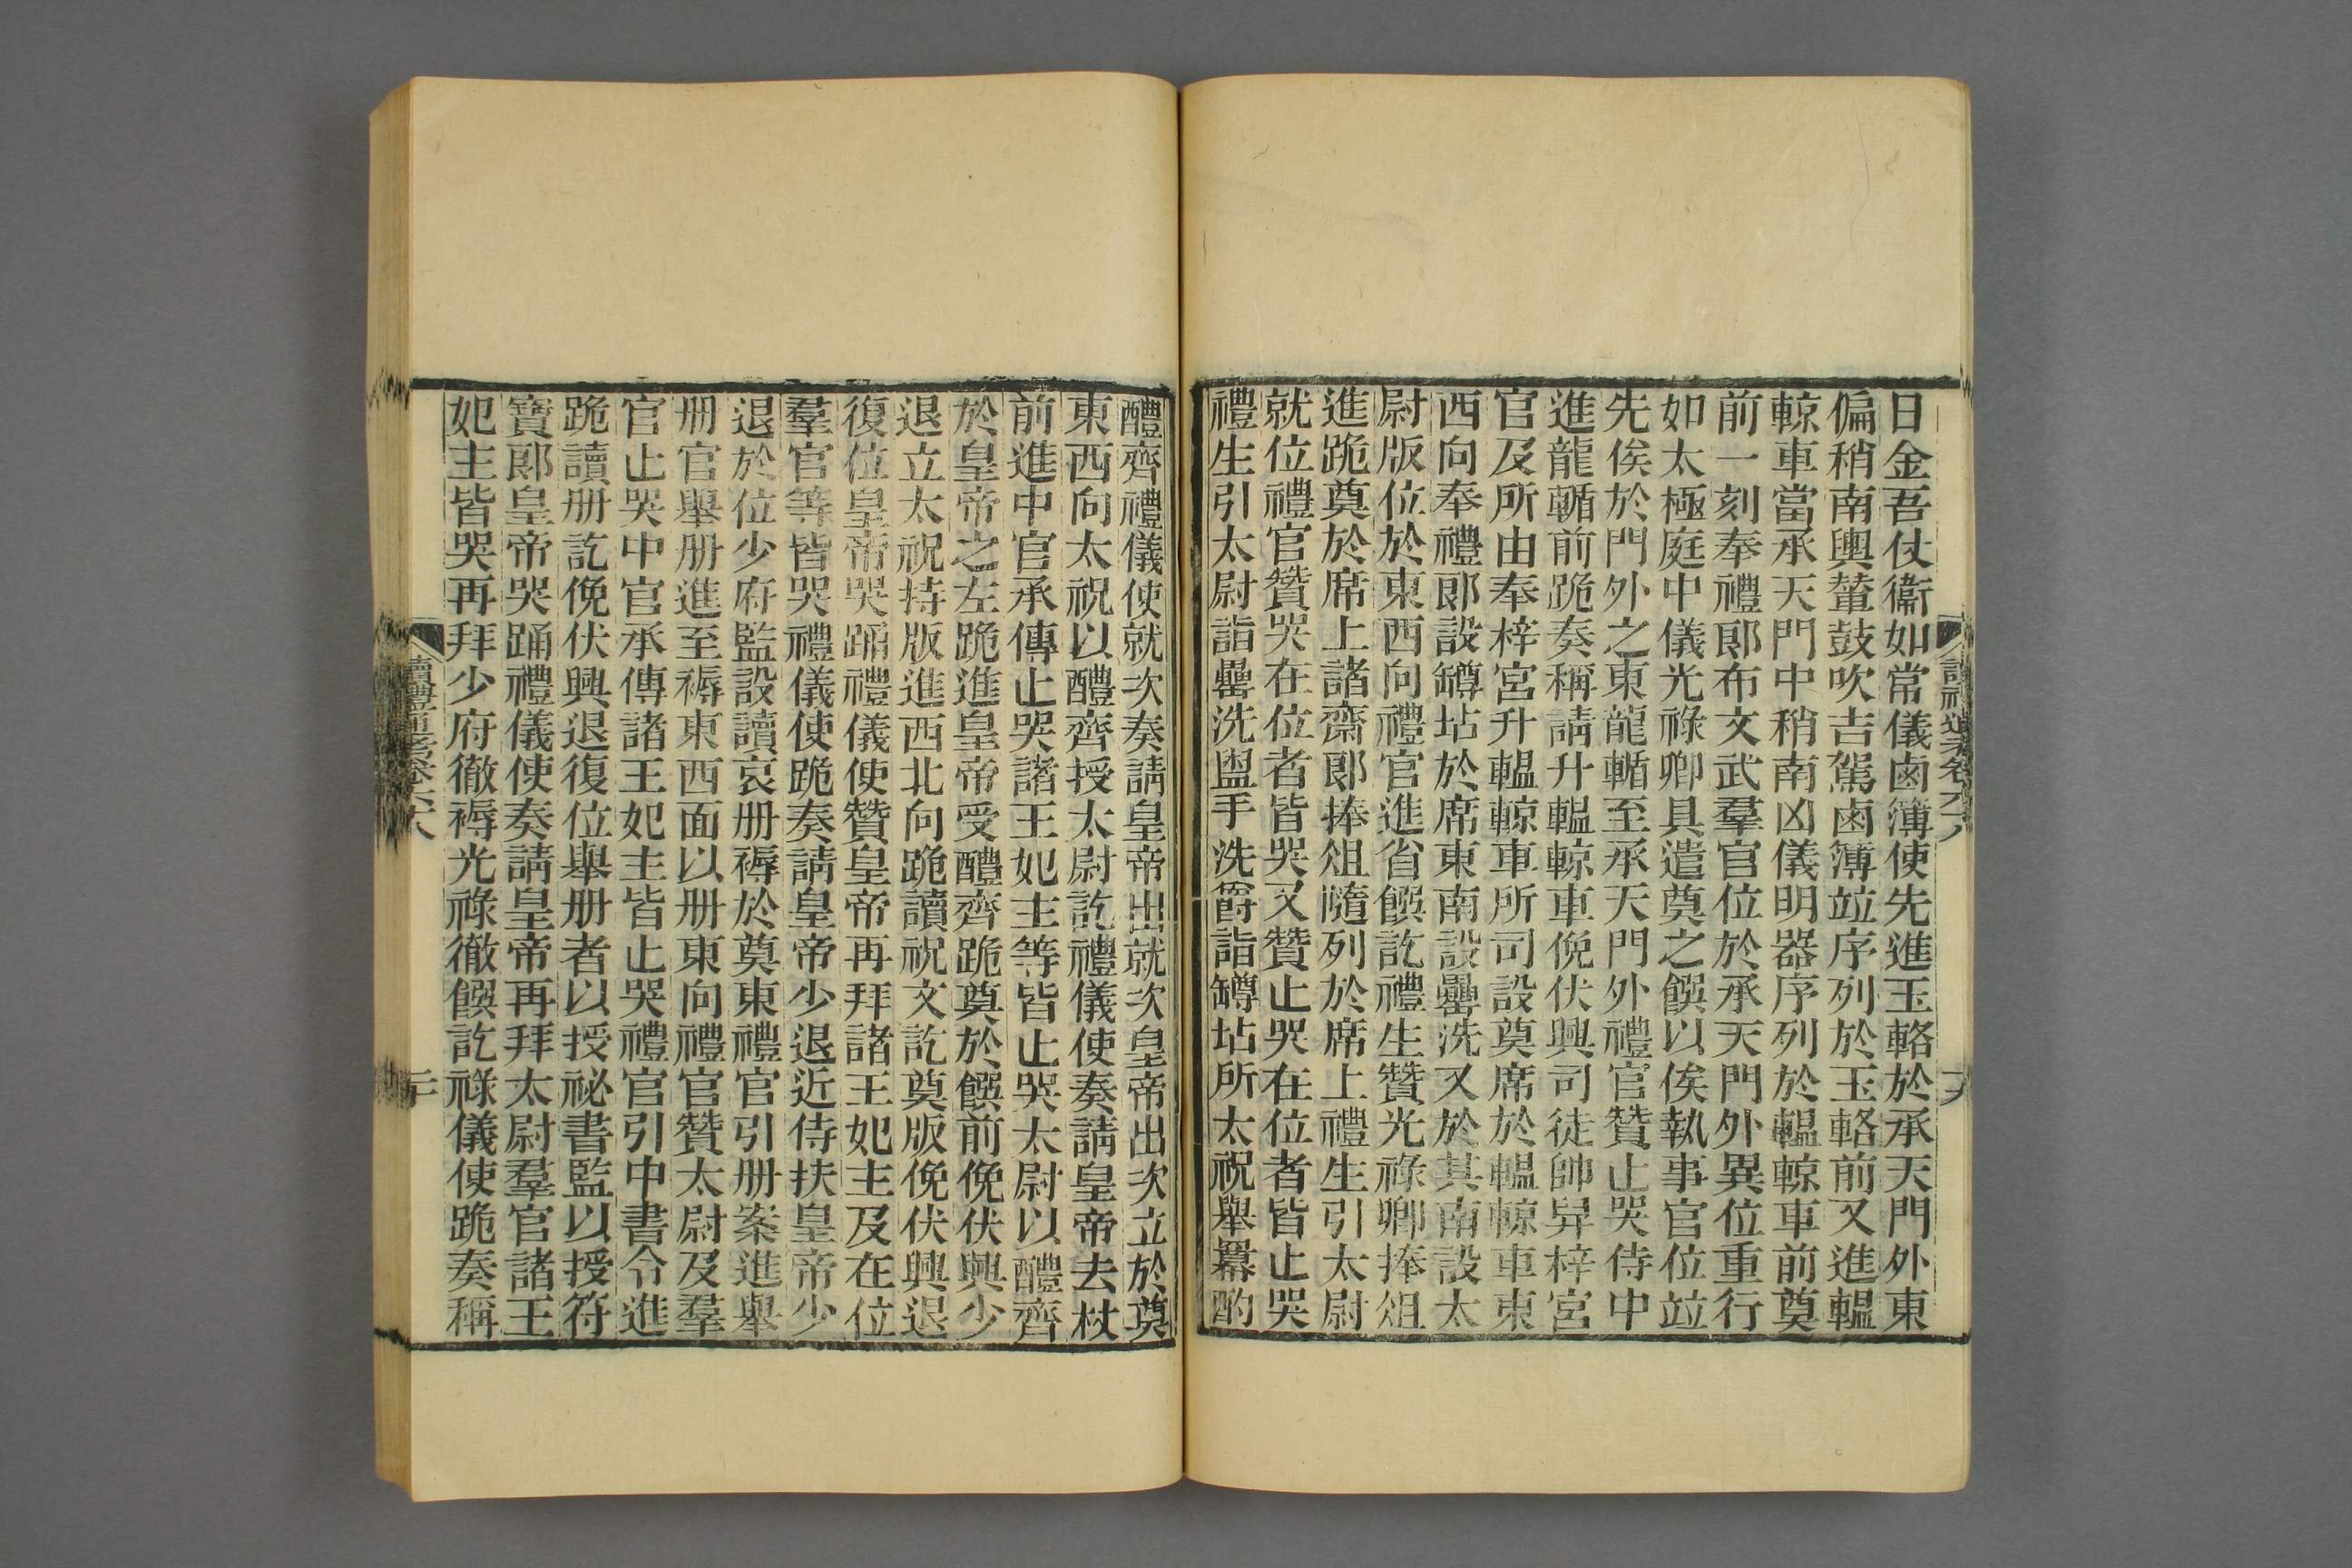 日金吾仗衞如常儀鹵簿使先進玉輅於承天門外東
偏稍南輿輦鼓吹吉駕鹵簿竝序列於玉輅前又進輼
輬車當承天門中稍南凶儀明器序列於輼輬車前奠
前一刻奉禮郎布文武羣官位於承天門外異位重行
如太極庭中儀光祿卿具遣奠之饌以俟執事官位竝
先俟於門外之東龍輴至承天門外禮官贊止哭侍中
進龍輴前跪奏稱請升輼輬車俛伏興司徒帥舁梓宮
官及所由奉梓宮升輼輬車所司設奠席於輼輬車東
西向奉禮郎設罇坫於席東南設罍洗又於其南設太
尉版位於東西向禮官進省饌訖禮生贊光祿卿捧俎
進跪奠於席上諸齋郎捧俎隨列於席上禮生引太尉
就位禮官贊哭在位者皆哭又贊止哭在位者皆止哭
禮生引太尉詣罍洗盥手洗爵詣罇坫所太祝舉羃酌
醴齊禮儀使就次奏請皇帝出就次皇帝出次立於奠
東西向太祝以醴齊授太尉訖禮儀使奏請皇帝去杖
前進中官承傳止哭諸王妃主等皆止哭太尉以醴齊
於皇帝之左跪進皇帝受醴齊跪奠於饌前俛伏興少
退立太祝持版進西北向跪讀祝文訖奠版俛伏興退
復位皇帝哭踊禮儀使贊皇帝再拜諸王妃主及在位
羣官等皆哭禮儀使跪奏請皇帝少退近侍扶皇帝少
退於位少府監設讀哀册褥於奠東禮官引册案進舉
册官舉册進至褥東西面以册東向禮官贊太尉及羣
官止哭中官承傳諸王妃主皆止哭禮官引中書令進
跪讀册訖俛伏興退復位舉册者以授祕書監以授符
寶郎皇帝哭踊禮儀使奏請皇帝再拜太尉羣官諸王
妃主皆哭再拜少府徹褥光祿徹饌訖禮儀使跪奏稱
讀禮通考卷六十八
二十